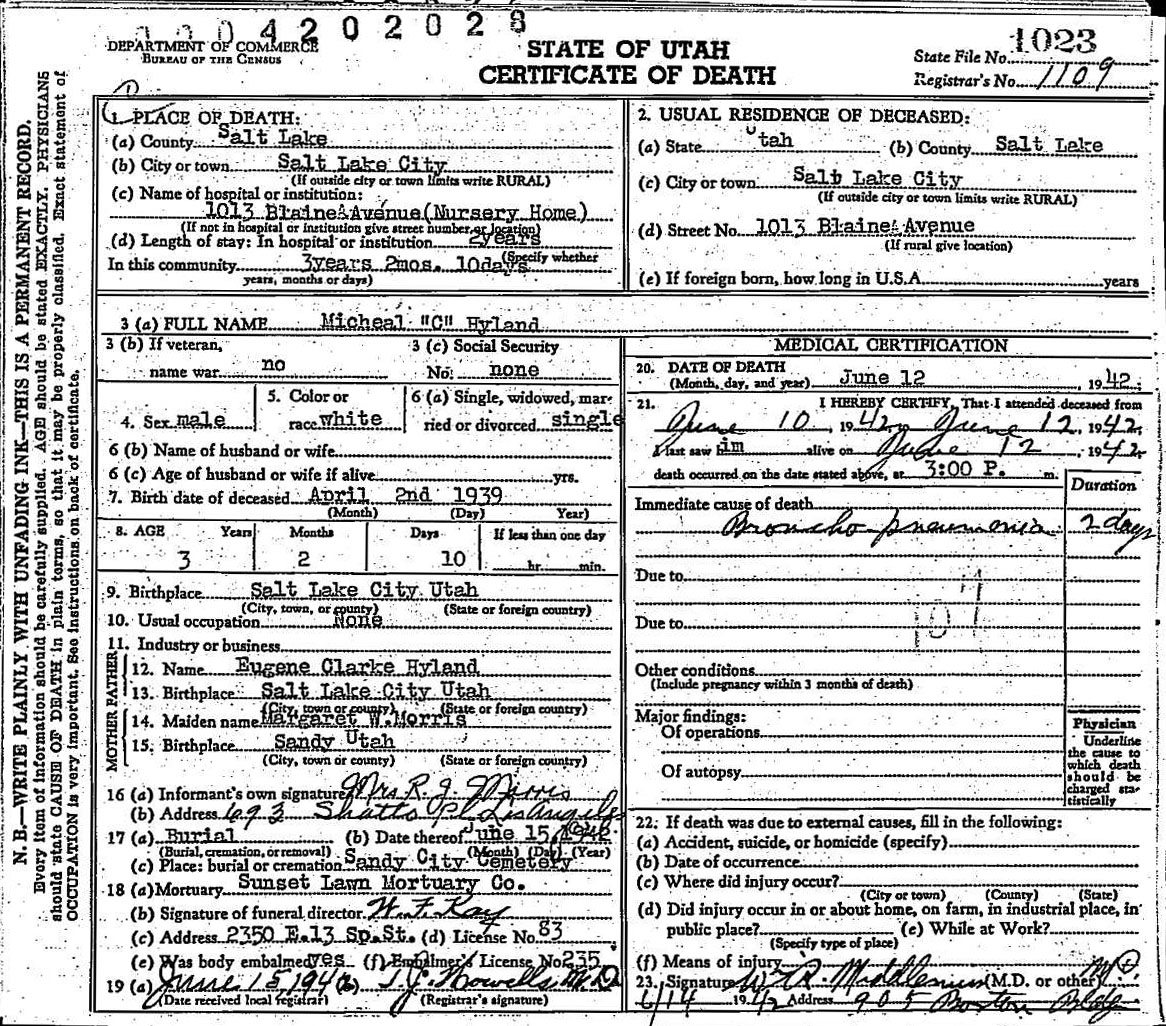 0004202028
DEPARTMENT OF COMMERCE
BUREAU OF THE CENSUS
STATE OF UTAH
CERTIFICATE OF DEATH
State File No. 1023
Registrar's No. 1109
N. B.—WRITE PLAINLY WITH UNFADING INK—THIS IS A PERMANENT RECORD.
Every item of information should be carefully supplied. AGE should be stated EXACTLY. PHYSICIANS
should state CAUSE OF DEATH in plain terms, so that it may be properly classified. Exact statement of
OCCUPATION is very important. See instructions on back of certificate.
1. PLACE OF DEATH:
(a) County Salt Lake
(b) City or town Salt Lake City
(If outside city or town limits write RURAL)
(c) Name of hospital or institution:
1013 Blaine Avenue(Nursery Home)
(If not in hospital or institution give street number or location)
(d) Length of stay: In hospital or institution 2years
(Specify whether
In this community 3years 2mos. 10days
years, months or days)
2. USUAL RESIDENCE OF DECEASED:
(a) State Utah (b) County Salt Lake
(c) City or town Salt Lake City
(If outside city or town limits write RURAL)
(d) Street No. 1013 Blaine Avenue
(If rural give location)
(e) If foreign born, how long in U.S.A. years
3 (a) FULL NAME Micheal "C" Hyland
3 (b) If veteran, 3 (c) Social Security
name war no No. none
4. Sex male 5. Color or race white 6 (a) Single, widowed, married or divorced single
6 (b) Name of husband or wife
6 (c) Age of husband or wife if alive yrs.
7. Birth date of deceased April 2nd 1939
(Month) (Day) Year)
8. AGE Years Months Days If less than one day
3 2 10 hr. min.
9. Birthplace Salt Lake City Utah
(City, town, or county) (State or foreign country)
10. Usual occupation None
11. Industry or business
FATHER
12. Name Eugene Clarke Hyland
13. Birthplace Salt Lake City Utah
(City, town or county) (State or foreign country)
MOTHER
14. Maiden name Margaret W.Morris
15. Birthplace Sandy Utah
(City, town or county) (State or foreign country)
16 (a) Informant's own signature Mrs R. J. Morris
(b) Address 693 Shatto Pl. Los Angeles
17 (a) Burial (b) Date thereof June 15, 1942
(Burial, cremation, or removal) (Month) (Day) (Year)
(c) Place: burial or cremation Sandy City Cemetery
18 (a) Mortuary Sunset Lawn Mortuary Co.
(b) Signature of funeral director W. F. Kay
(c) Address 2350 E.13 Sp.St. (d) License No. 83
(e) Was body embalmed yes (f) Embalmer's License No. 235
19 (a) June 15, 1942 (b) T. J. Howells, M.D.
(Date received local registrar) (Registrar's signature)
MEDICAL CERTIFICATION
20. DATE OF DEATH
(Month, day, and year) June 12, 1942.
21. I HEREBY CERTIFY, That I attended deceased from
June 10, 1942, June 12, 1942,
I last saw im alive on June 12, 1942.
death occurred on the date stated above, at 3:00 P. m.
Duration
Immediate cause of death
Broncho-pneumonia 2 days
Due to
107
Due to
Other conditions
(Include pregnancy within 3 months of death)
Major findings:
Of operations
Of autopsy
Physician
Underline
the cause to
which death
should be
charged statistically
22. If death was due to external causes, fill in the following:
(a) Accident, suicide, or homicide (specify)
(b) Date of occurrence
(c) Where did injury occur?
(City or town) (County) (State)
(d) Did injury occur in or about home, on farm, in industrial place, in
public place? (e) While at Work?
(Specify type of place)
(f) Means of injury
23. Signature W. R. Middlemiss (M.D. or other) M.D.
6/14 1942 Address 905 Boston Bldg